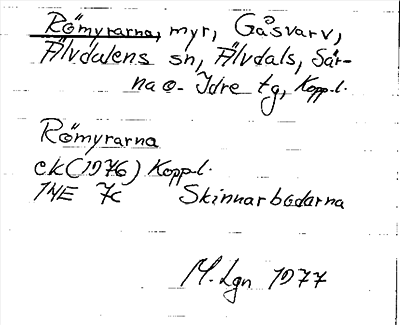 Römyrarna, myr, Gåsvarv,
Älvdalens sn, Älvdals, Sär-
na o. Idre tg, Kopp.l.
Römyrarna
ek (1976) Kopp.l.
14E 7c Skinnarbodarna
M. Lgn 1977